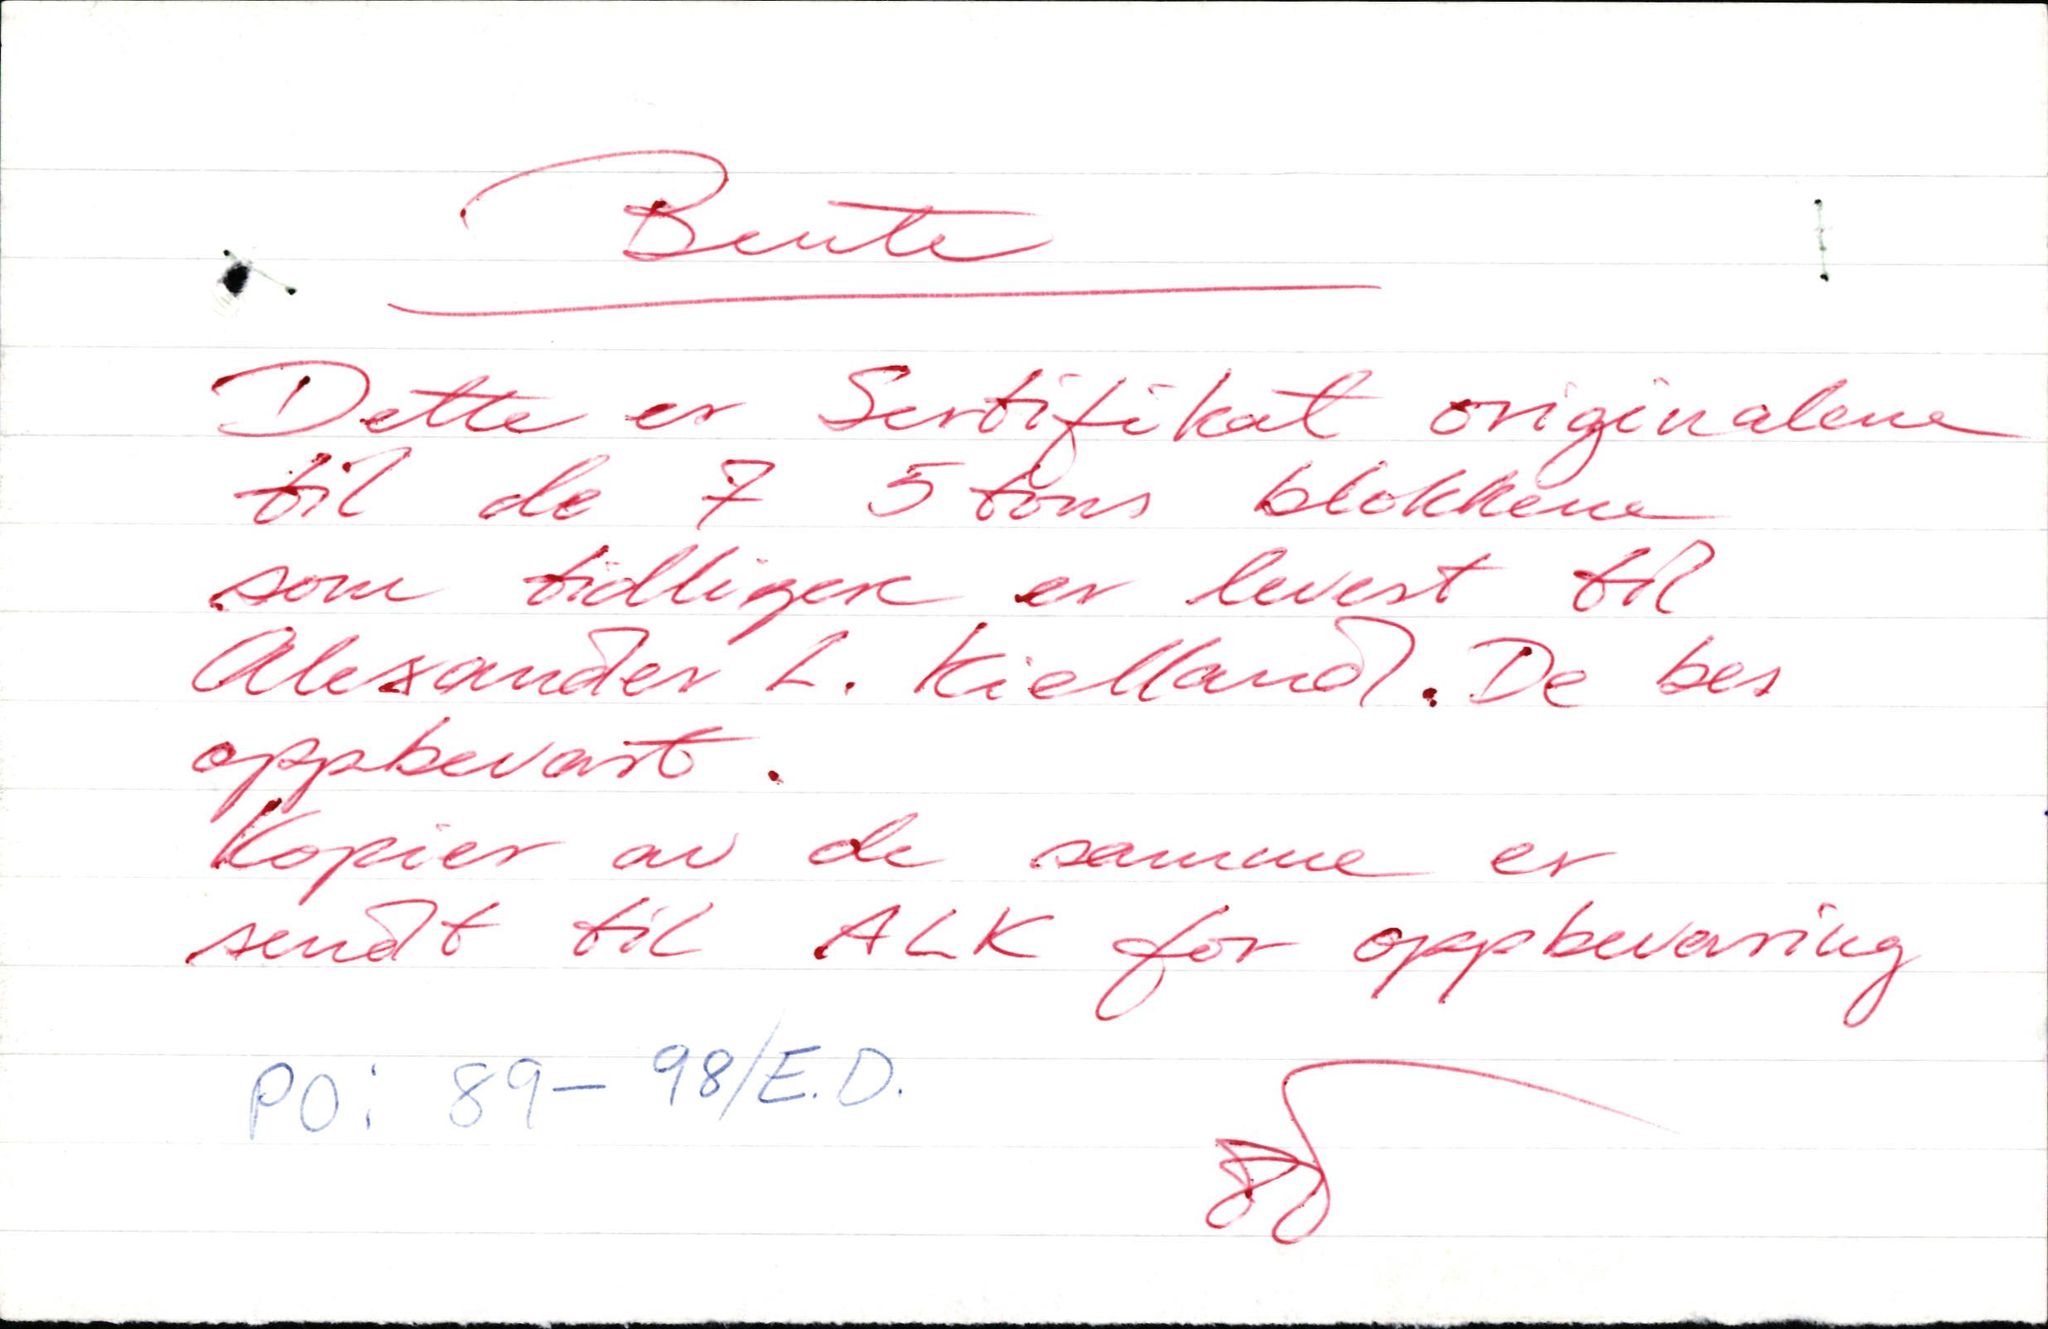 Bente
Dette er Sertifikat originalene
til de 7 5 tons blokkene
som tidligere er levert til
Alexander L. Kielland. De bes
oppbevart.
Kopier av de samme er
sendt til ALK for oppbevaring
PO: 89-98/E.D.